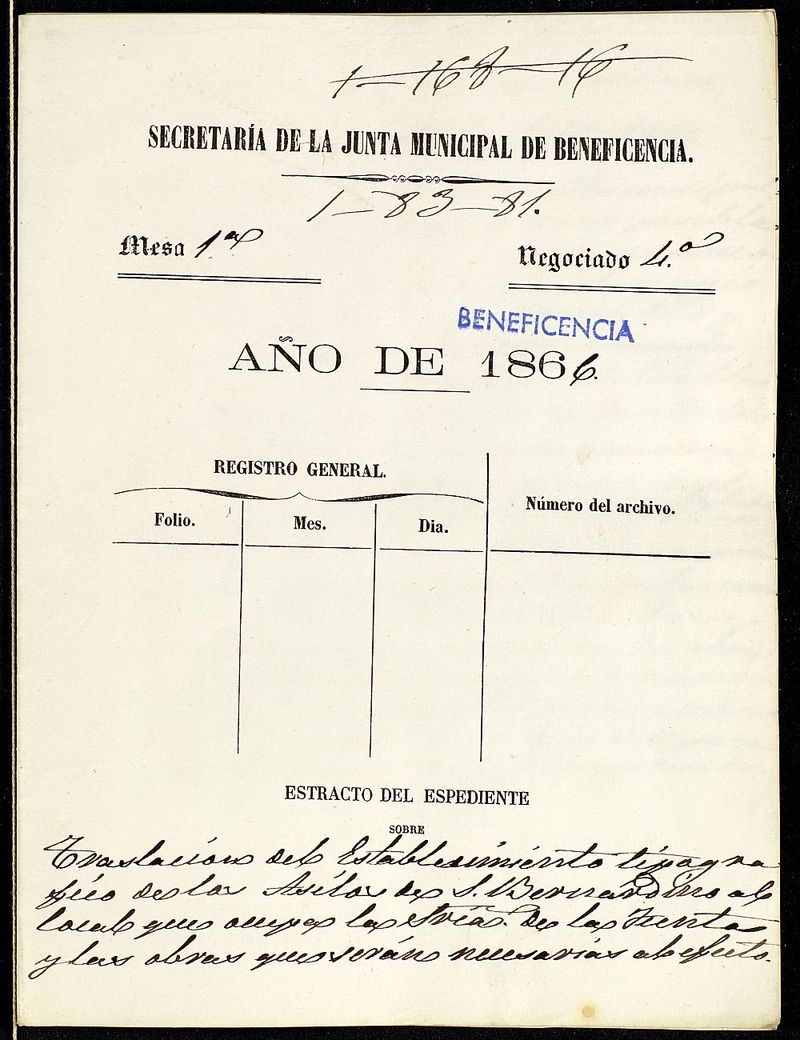 1-168-16
SECRETARÍA DE LA JUNTA MUNICIPAL DE BENEFICENCIA.
1-83-81.
Mesa 1.ª Negociado 4.º
BENEFICENCIA
AÑO DE 1866.
REGISTRO GENERAL.
Número del archivo.
Folio. Mes. Dia.
ESTRACTO DEL ESPEDIENTE
SOBRE
Traslacion del Establecimiento tipogra
fico de los Asilos de S. Bernardino al
local que ocupa la Sría. de la Junta
y las obras que serán necesarias al efecto.